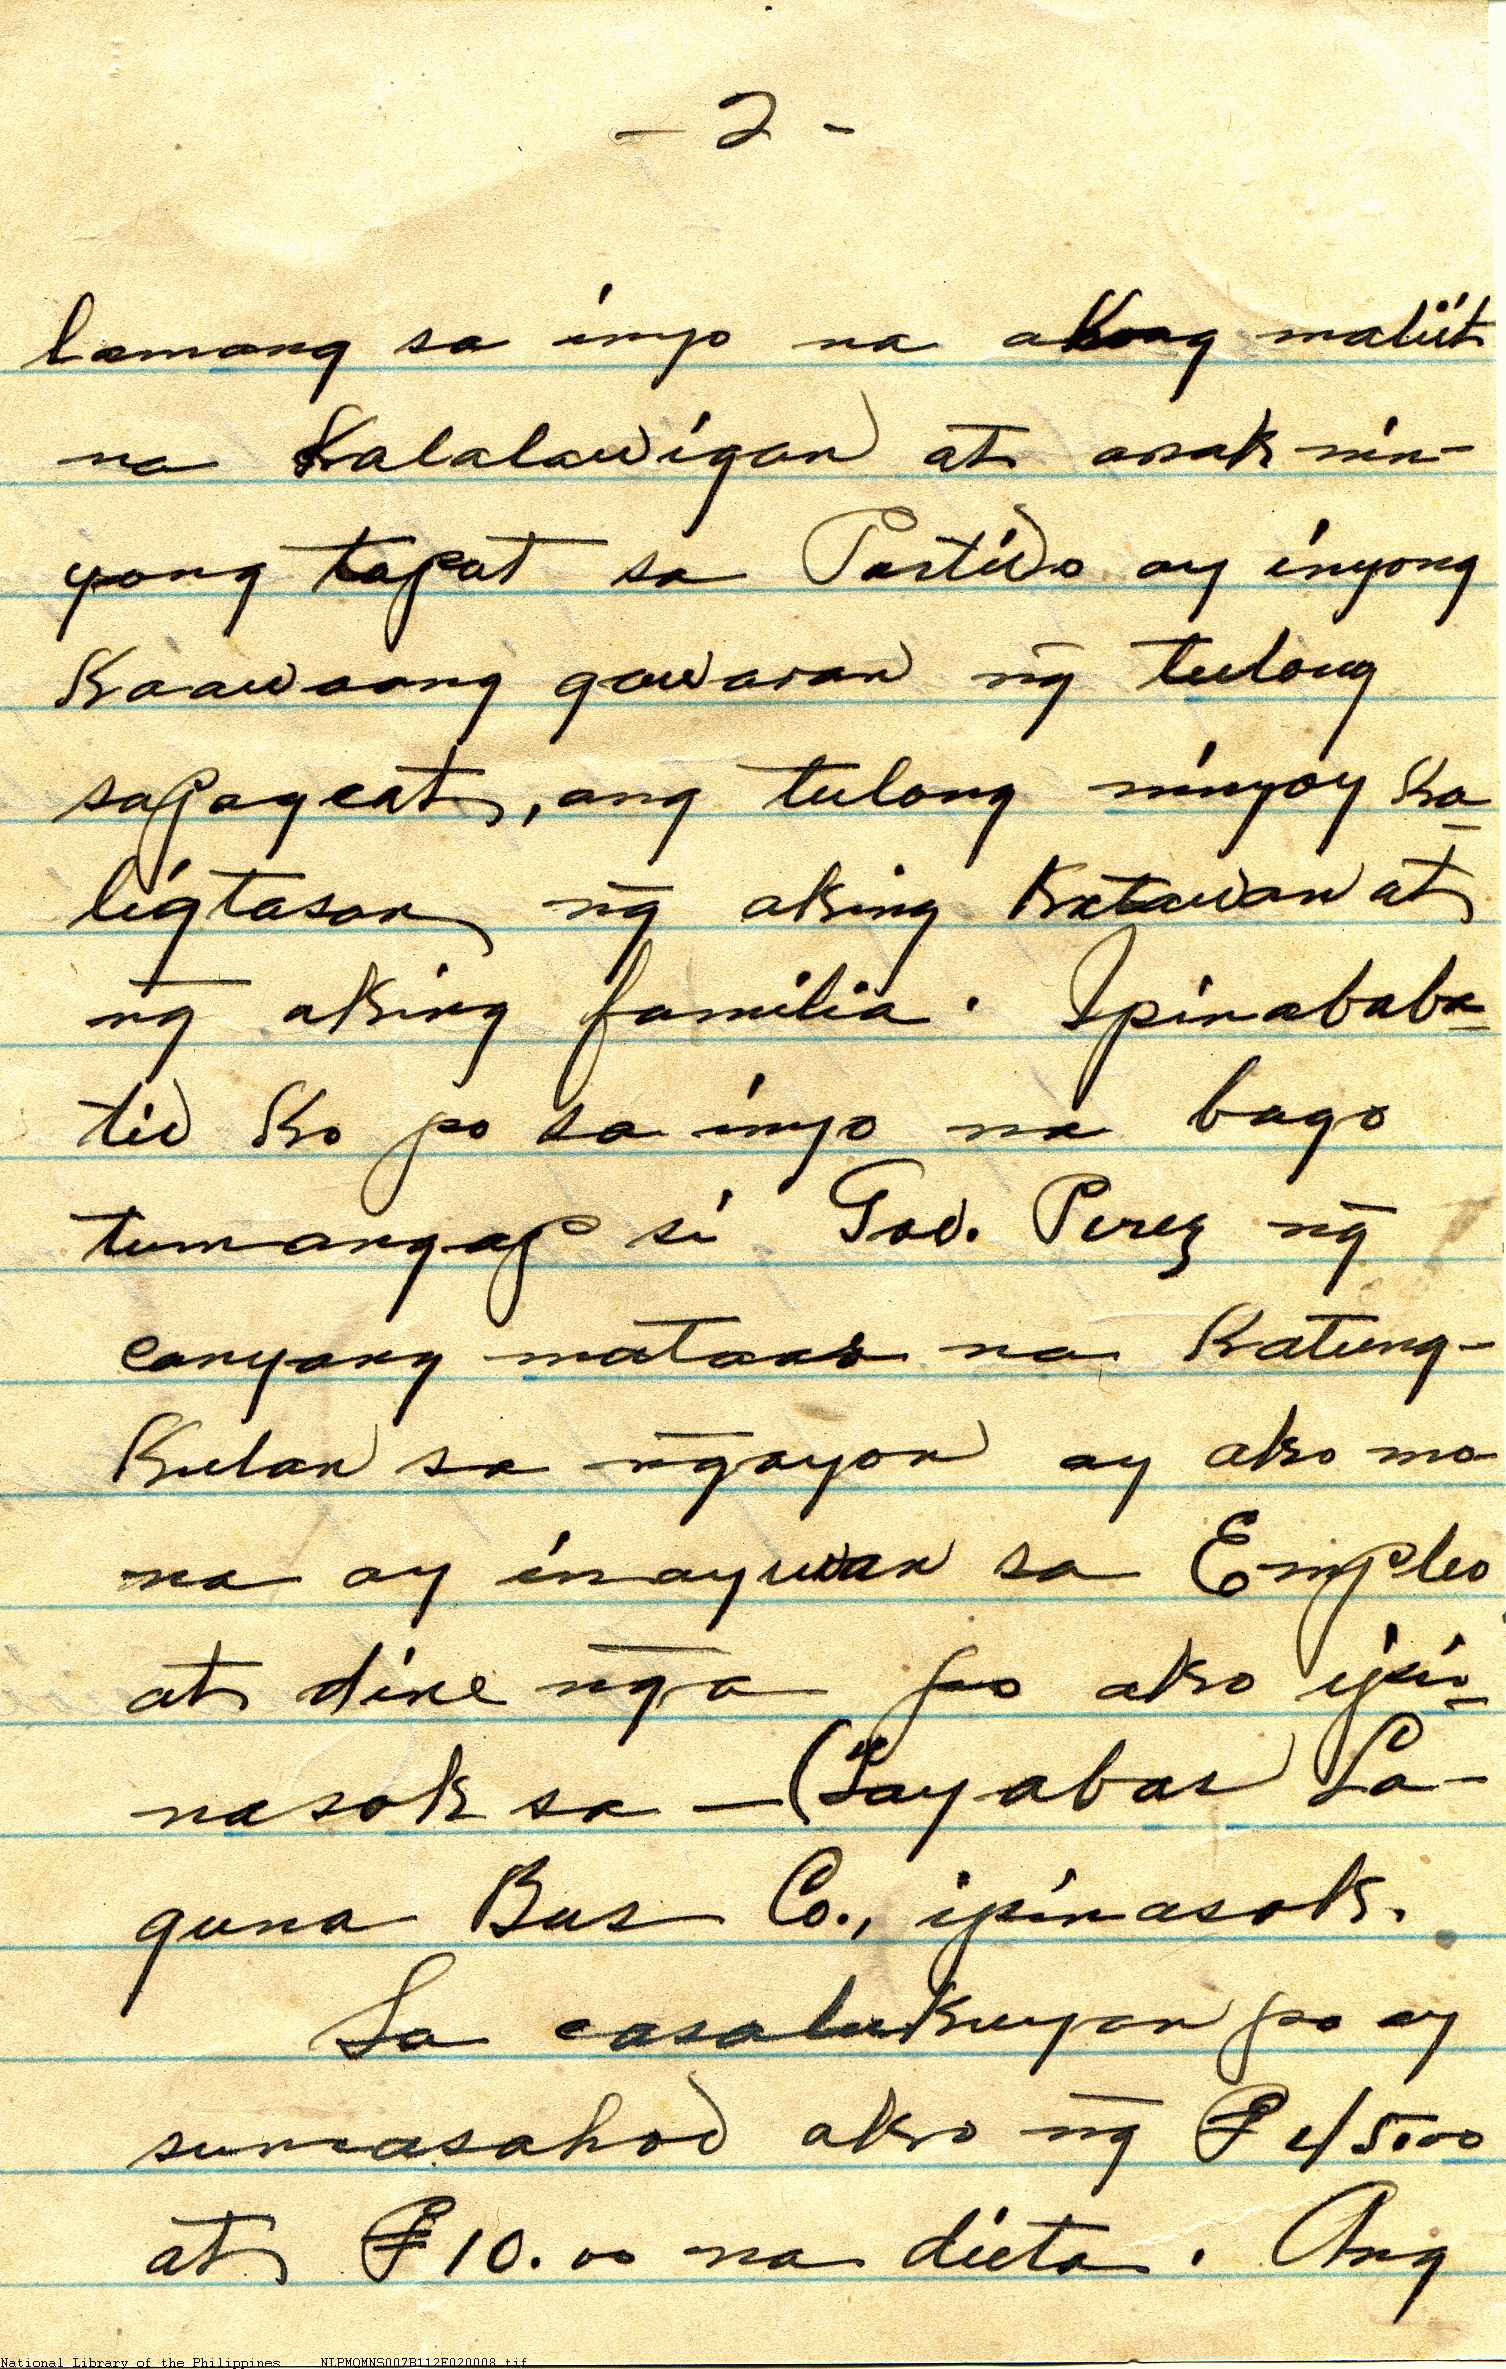 - 2 -
lamang sa inyo na akong maliit
na Kalalawigan at anak nin-
yong tapat sa Partido ay inyong
Kaawaang gawaran ng̃ tulong
sapagcat, ang tulong ninyoy Ka-
ligtasan ng̃ aking Katawan at
ng̃ aking familia. Ipinababa-
tid Ko po sa inyo na bago
tumangap si Gov. Perez ng̃
canyang mataas na Katung-
Kulan sa ng̃ayon ay ako mo
na ay inayuan sa Empleo
at dine ng̃a po ako ipi-
nasok sa - (Tayabas La-
guna Bus Co., ipinasok.
Sa casalukuyan po ay
sumasahod ako ng̃ ₱45.00
at ₱10.00 na dieta. Ang
National Library of the Philippines NLPMQMNS007B112F020008.tif